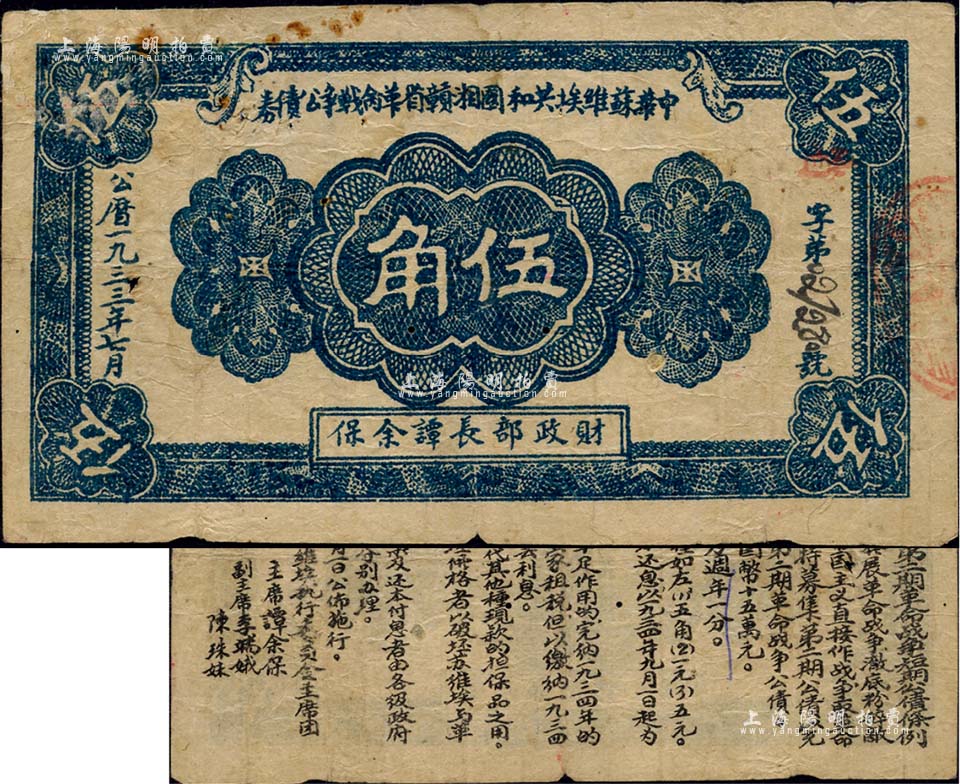 上海陽明拍賣
www.yangmingauction.com
伍
伍
中華蘇維埃共和國湘贛省革命戰爭公債券
字第
號
伍角
公曆一九三三年七月
財政部長譚余保
伍
伍
上海陽明拍賣
www.yangmingauction.com
第二期革命战争短期公債條例
展革命战争澈底粉
國主义直接作战爭
特募集第二期公債
第二期革命战争公債
國幣十五萬元。
週年一分。
如左(1)五角(2)一元(3)五元。
还息以一九三四年九月一日起为
足作用的完纳一九三四年的
家租税但以繳纳一九三四
利息。
代其他種現款的担保品之用。
價格者以破坏苏维埃与革
及还本付息者由各级政府
分别办理。
月一日公佈施行。
維埃执行委員会主席团
主席譚余保
副主席李端娥
陳珠妹
上海陽明拍賣
www.yangmingauction.com
上海陽明拍賣
www.yangmingauction.com